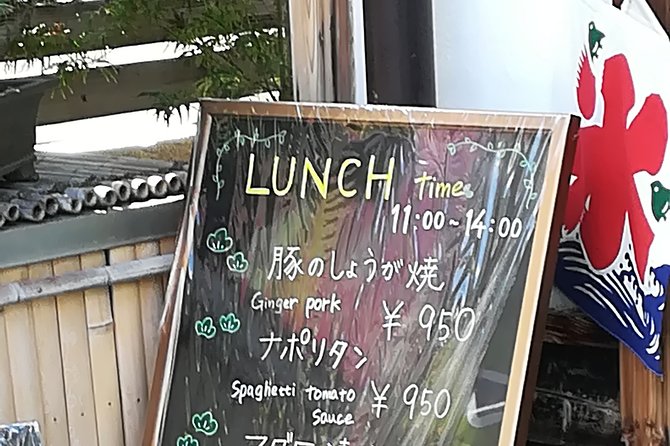 LUNCH time
11:00~14:00
豚のしょうが焼
Ginger pork ¥950
ナポリタン
Spaghetti tomato sauce ¥950